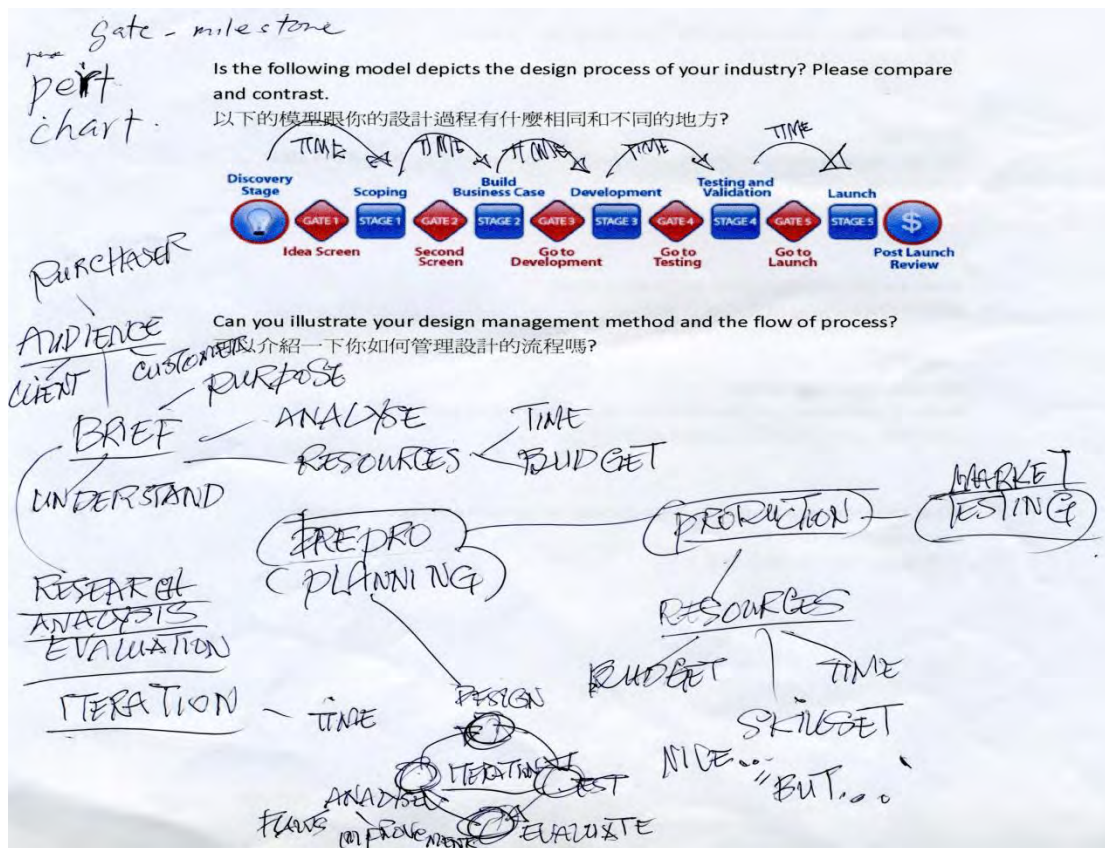 gate - milestone
pert
chart.
Is the following model depicts the design process of your industry? Please compare
and contrast.
以下的模型跟你的設計過程有什麼相同和不同的地方?
TIME TIME TIME TIME TIME
Discovery
Stage
Scoping
Build
Business Case
Development
Testing and
Validation
Launch
GATE 1 STAGE 1 GATE 2 STAGE 2 GATE 3 STAGE 3 GATE 4 STAGE 4 GATE 5 STAGE 5 $
Idea Screen
Second
Screen
Go to
Development
Go to
Testing
Go to
Launch
Post Launch
Review
Can you illustrate your design management method and the flow of process?
可以介紹一下你如何管理設計的流程嗎?
PURCHASER
AUDIENCE
CLIENT
CUSTOMERS
PURPOSE
BRIEF
ANALYSE
RESOURCES
TIME
BUDGET
UNDERSTAND
PREPRO
PLANNING
PRODUCTION
MARKET
TESTING
RESEARCH
ANALYSIS
EVALUATION
ITERATION
TIME
RESOURCES
BUDGET
TIME
SKILLSET
NICE...
"BUT...
DESIGN
ITERATION
TEST
ANALYSE
FLAWS
IMPROVEMENT
EVALUATE